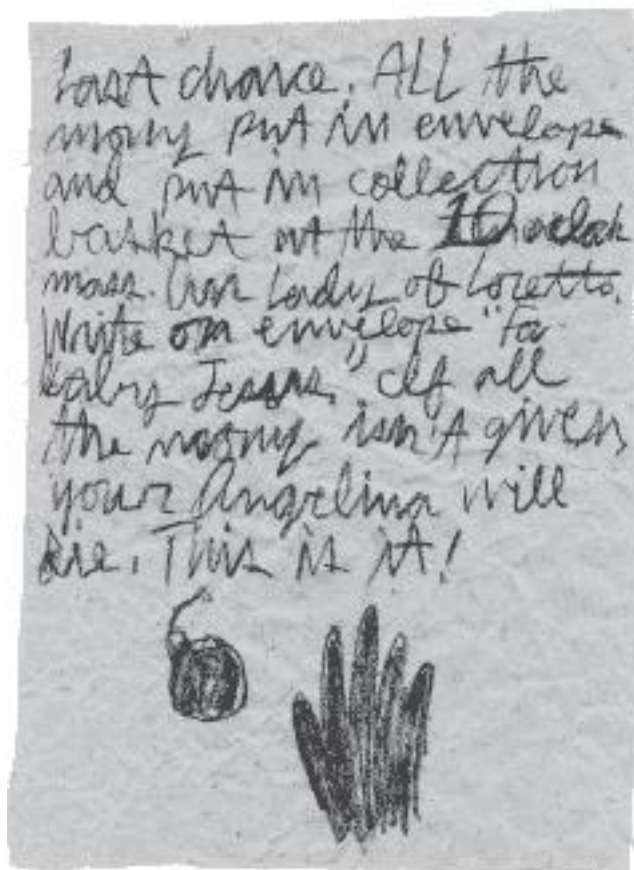 Last chance. ALL the
mony put in envelope
and put in collection
basket at the 10 oclok
mass. Our Lady of Loretto.
Write on envelope "Fa
baby Jesus." If all
the mony isn't given,
your Angelina will
die. This is it!